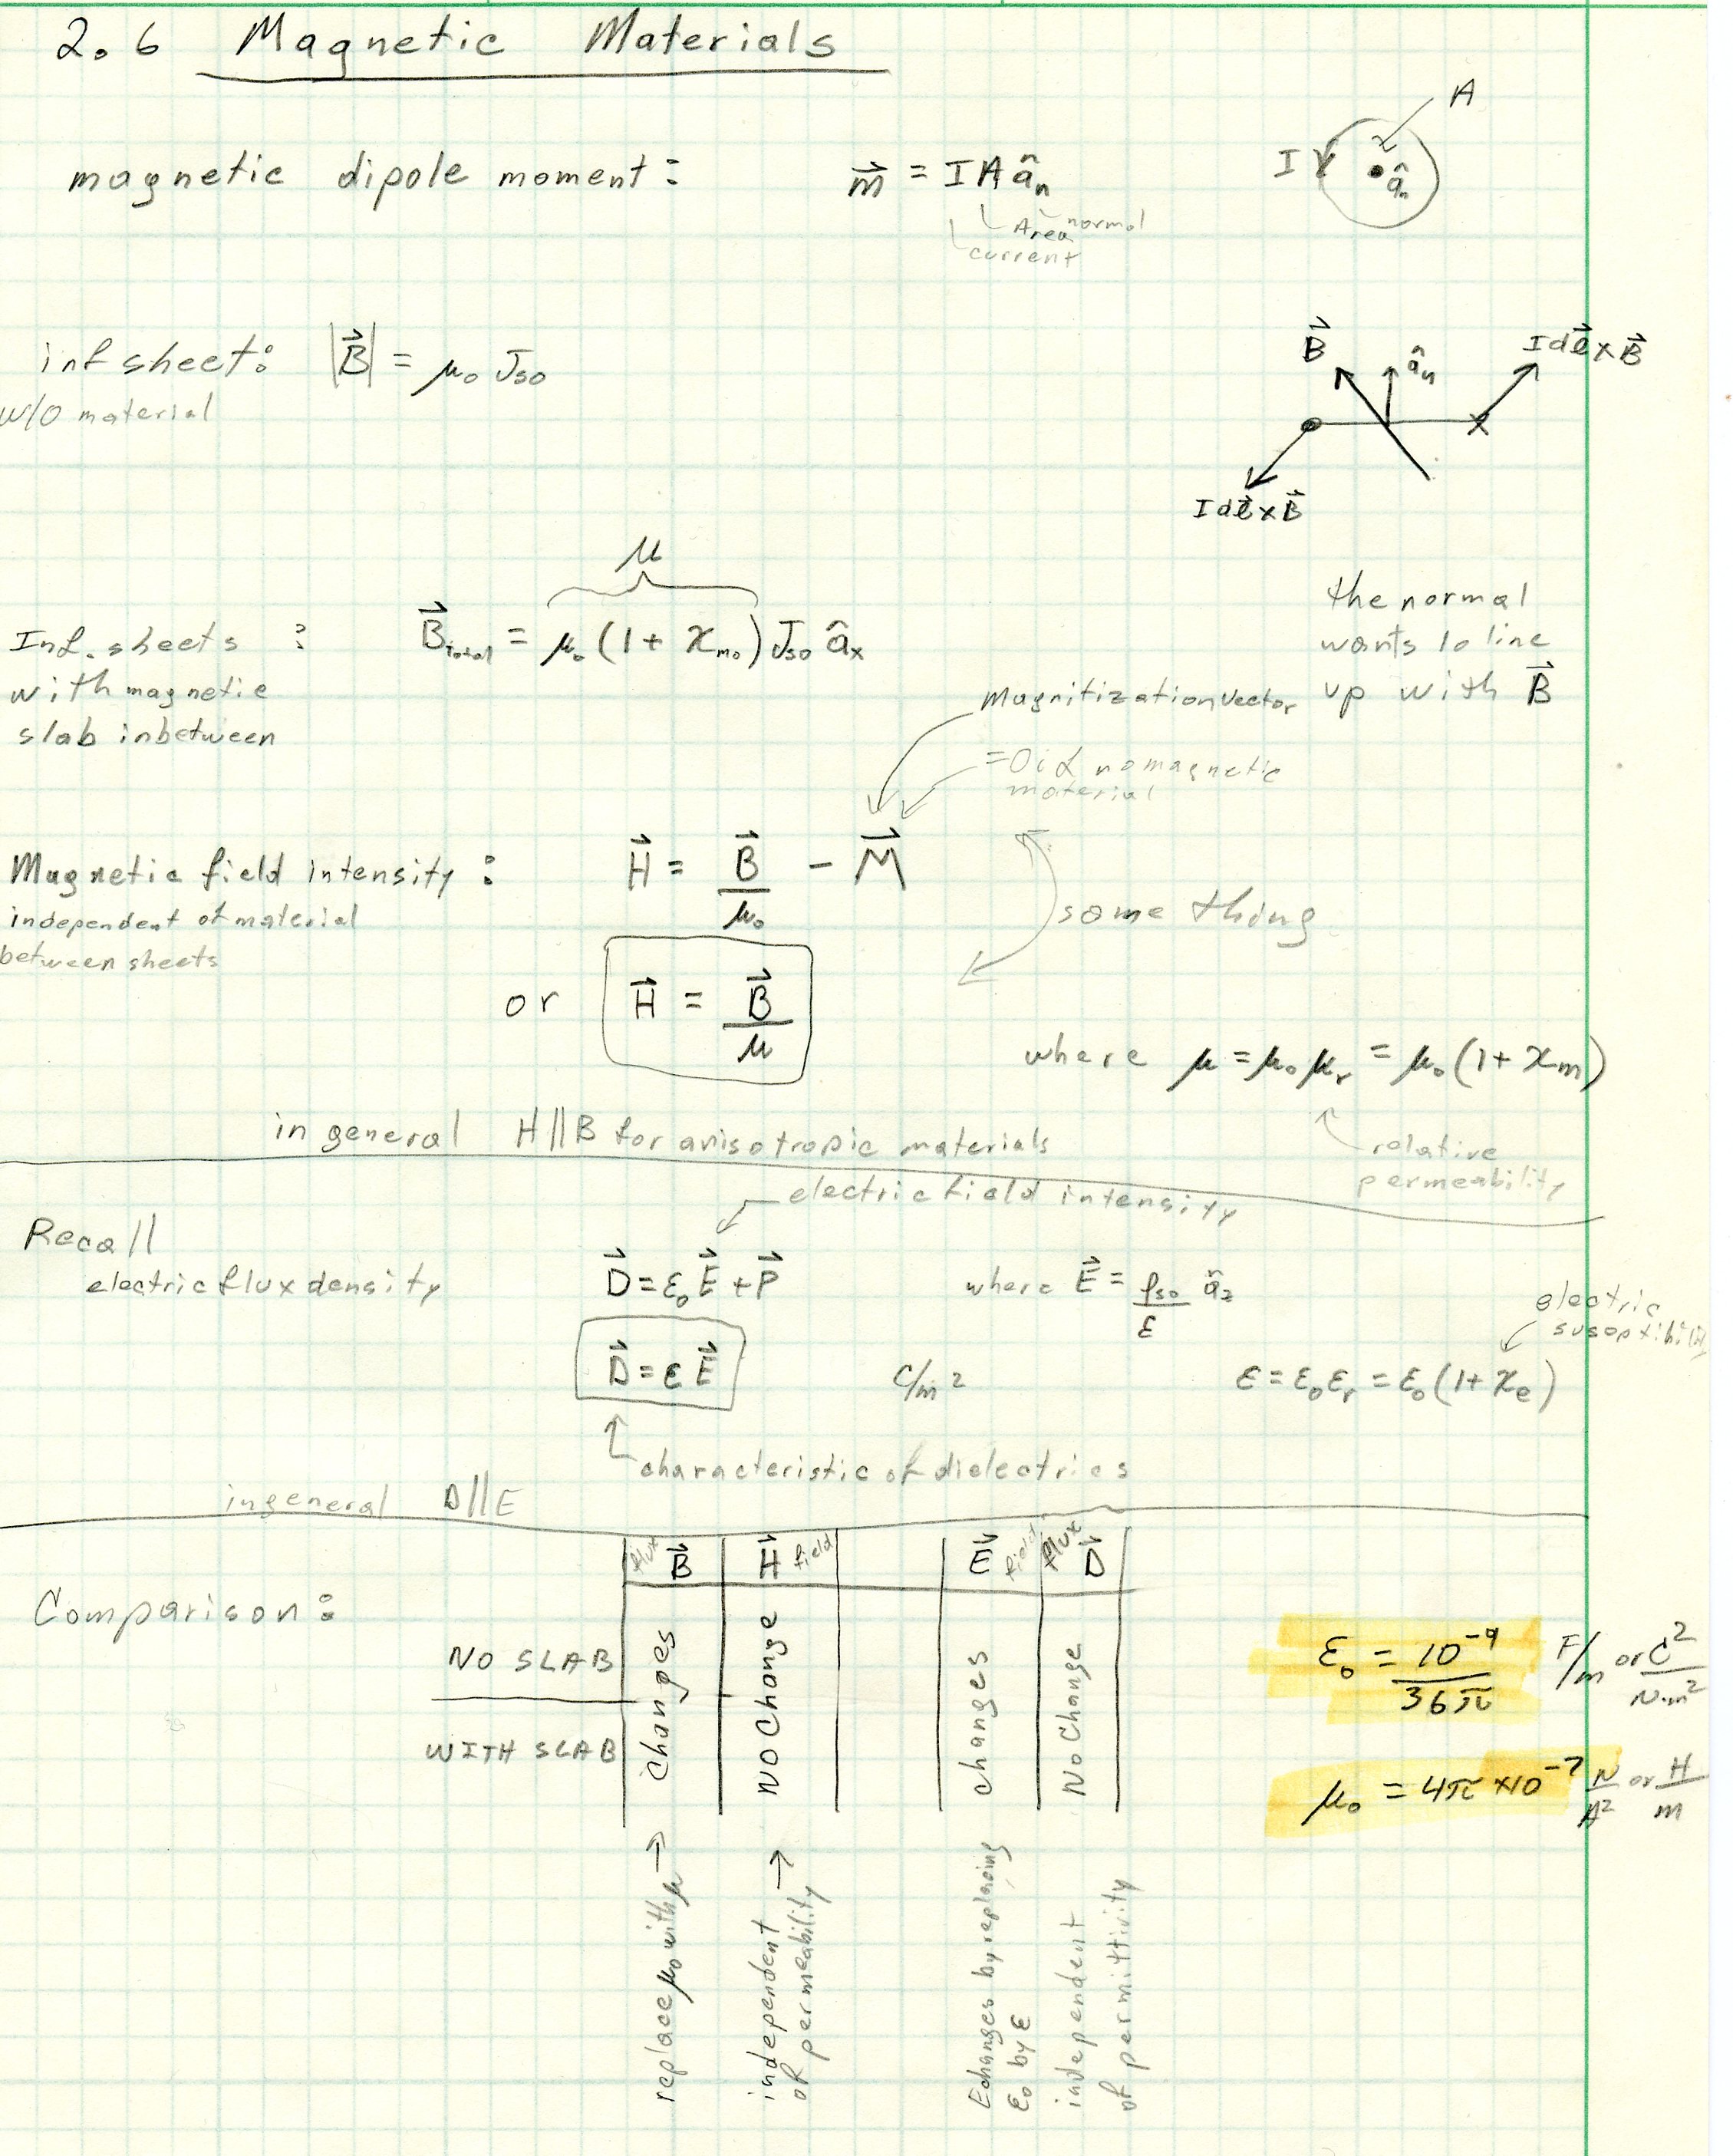 2.6 Magnetic Materials
A
magnetic dipole moment: m⃗ = I A âₙ
I âₙ
Area normal
current
inf sheet: |B⃗| = μ₀ Jso
w/o material
B⃗ âₙ Idl⃗ x B⃗
Idl⃗ x B⃗
μ
Inf. sheets : B⃗total = μ₀ (1 + χmo) Jso âx
with magnetic
slab inbetween
the normal
wants to line
up with B⃗
Magnitization vector
= 0 if no magnetic
material
Magnetic field intensity : H⃗ = B⃗/μ₀ - M⃗
independent of material
between sheets
same thing
or H⃗ = B⃗/μ
where μ = μ₀ μr = μ₀ (1 + χm)
relative
permeability
in general H||B for anisotropic materials
electric field intensity
Recall
electric flux density D⃗ = ε₀ E⃗ + P⃗ where E⃗ = ρso/ε âz
electric
D⃗ = ε E⃗ C/m² ε = ε₀ εr = ε₀ (1 + χe)
characteristic of dielectrics
in general D||E
flux B⃗ H⃗ field E⃗ field flux D⃗
Comparison:
NO SLAB
WITH SLAB
Changes
No Change
changes
No Change
replace μ₀ with μ →
independent →
of permeability
E changes by replacing
ε₀ by ε
independent
of permittivity
ε₀ = 10⁻⁹/36π F/m or C²/N·m²
μ₀ = 4π x10⁻⁷ N/A² or H/m